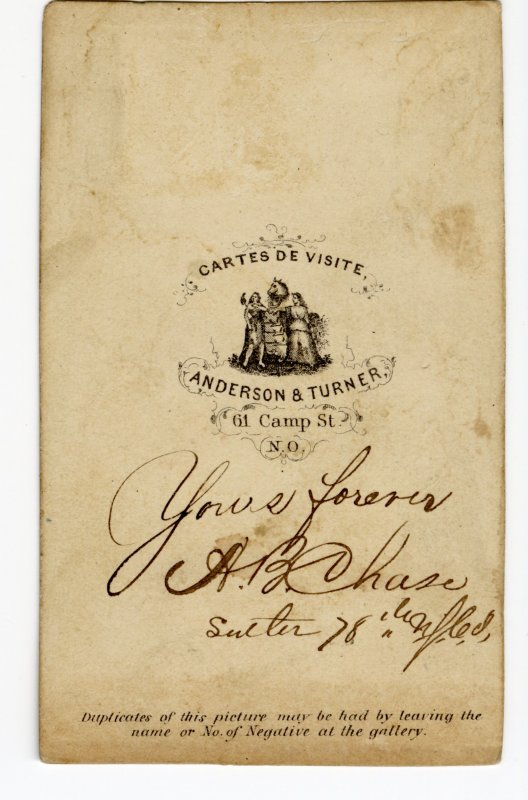 CARTES DE VISITE,
ANDERSON & TURNER,
61 Camp St.
N.O.
Yours forever
A. B. Chase
Sutler 78th
Duplicates of this picture may be had by leaving the
name or No. of Negative at the gallery.